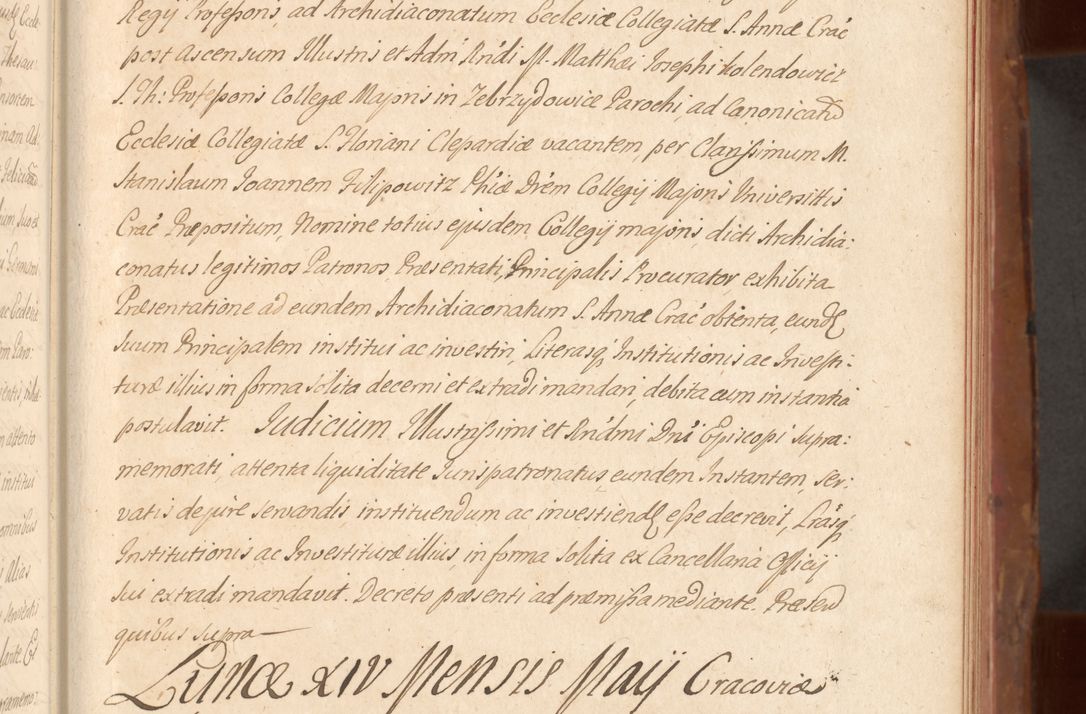 Regij Professoris, ad Archidiaconatum Ecclesiæ Collegiatæ S. Annæ Crac̃
post ascensum Illustris et Adm̃ Rn̄di M. Matthæi Josephi Kolendowicz
S. Th: Professoris Collegæ Majoris in Zebrzydowice Parochi, ad Canonicatũ
Ecclesiæ Collegiatæ S. Floriani Clepardiæ vacantem, per Clarissimum M.
Stanislaum Joannem Filipowitz Phiæ Dr̃em Collegij Majoris Universittis
Crac̃ Præpositum, Nomine totius ejusdem Collegij majoris dicti Archidia:
conatus legitimos Patronos, Præsentati, Principalis Procurator, exhibita
Præsentatione ad eundem Archidiaconatum S. Annæ Crac̃ obtenta, eundꝫ
suum Principalem institui ac investiri, Literasqꝫ Institutionis ac Investi:
turæ illius in forma solita decerni et extradi mandari, debita cum instantia
postulavit. Judicium Illustrissimi et Rn̄dmi Dn̄i Episcopi supra:
memorati, attenta liquiditate Jurispatronatus, eundem Instantem, ser:
vatis de jure servandis, instituendum ac investiendꝫ esse decrevit, Lrãsqꝫ
Institutionis ac Investituræ illius, in forma solita ex Cancellaria Officij
sui extradi mandavit. Decreto præsenti ad præmissa mediante. Præsentꝫ
quibus supra
Lunæ XIV Mensis Maij Cracoviæ